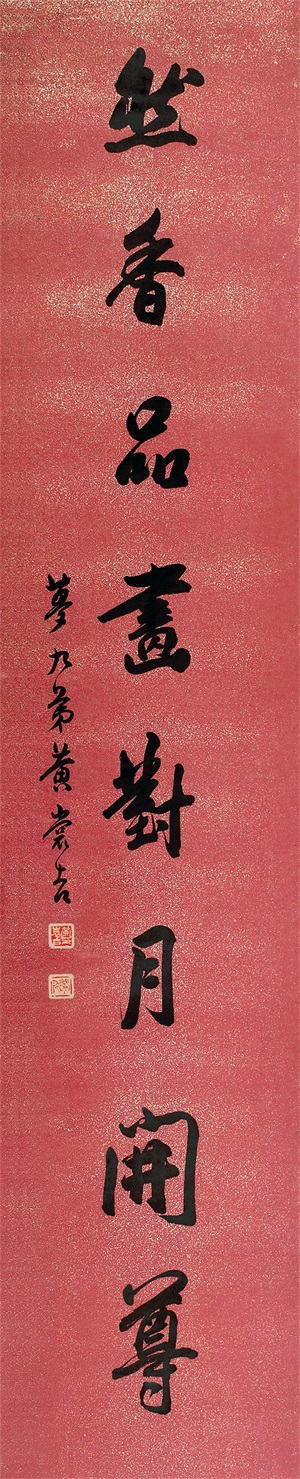 然香品畫對月開尊
夢九弟黃裳吉